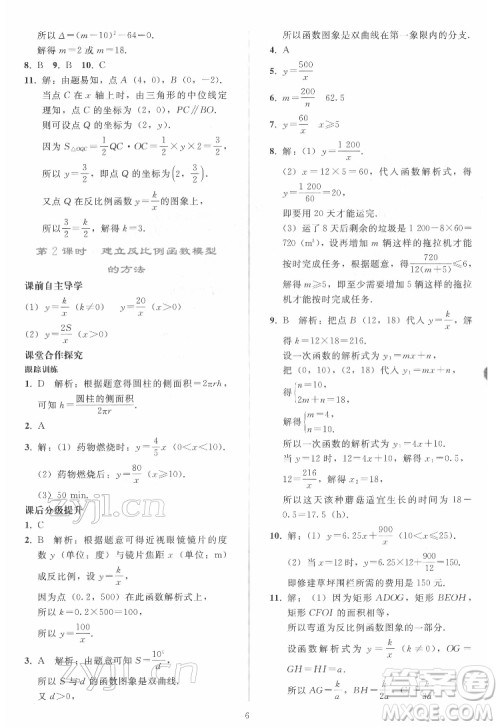 所以 Δ=(m-10)²-64=0.
8. B　9. B　10. C
11. 解：由题易知，点 A (4，0)，
当点 C 在 x 轴上时，由三角形的中位线定
理知，点 C 的坐标为 (2，0)，PC∥BH.
则可设点 Q 的坐标为 (2，y).
因为 S△OQC=1/2 QC·x=1/2×y×2=3/2,
所以 y=3/2，所以点 Q 的坐标为(2，3/2).
又点 Q 在反比例函数 y=k/x 的图象上，
所以 3/2=k/2，所以 k=3.
第 2 课时　建立反比例函数模型
的方法
课前自主导学
(1) y=k/x (k≠0)　y=20/x (x＞0)
(2) y=2S/x (x＞0)
课堂合作探究
跟踪训练
1. D　解析：根据题意得圆柱的侧面积=2πrh，
可知 h=圆柱的侧面积/2πr.
2. A
3. 解：(1) 药物燃烧时：y=4/5 x (0＜x＜10).
(2) 药物燃烧后：y=80/x (x＞10).
(3) 50 min.
课后分级提升
1. C
2. B　解析：根据题意近视眼镜镜片的度数
y (单位：度) 与镜片焦距 x (单位：m)
成反比例，设 y=k/x.
因为点 (0.2，500) 在此函数的图象上，
所以 k=0.2×500=100，
所以 y=100/x.
3. A　解析：由题意可知 d=10⁴/S，
所以 S 与 d 的函数图象是双曲线，
又 d＞0，
所以函数图象是双曲线在第一象限内的分支.
4. A
5. y=500/x
6. m=200/n　62.5
7. y=60/x　x≥5
8. 解：(1) y=1 200/x.
(2) x=12×5=60，代入函数解析式，得
y=1 200/60=20.
即要用 20 天才能运完.
(3) 运了 8 天后剩余的垃圾是 1 200-8×60=
720 (m³)，设增加 n 辆这样的拖拉机才能
按时完成任务，则 720/12(n+5)≤6，
解得 n≥5，即至少需要增加 5 辆这样的拖
拉机才能按时完成任务.
9. B　解析：把点 B (12，18) 代入 y=k/x，
得 k=12×18=216.
设一次函数的解析式为 y=mx+n，
把 (0，10)，(2，18) 代入 y=mx+n，
得 n=10, 2m+n=18, 解得 m=4, n=10,
所以一次函数的解析式为 y=4x+10.
当 y=12 时，12=4x+10，解得 x=0.5；
12=216/x，解得 x=18.
所以该天这种蘑菇适宜生长的时间为 18-
0.5=17.5 (h).
10. 解：(1) y=6.25x+900/x.
(2) 当 x=12 时，y=6.25×12+900/12=150.
即建成草坪围栏所需费用为 150 元.
11. 解：(1) 因为矩形 ADOG，矩形 BEOH，
矩形 CFOI 的面积相等，
所以弯道为反比例函数图象的一部分.
6